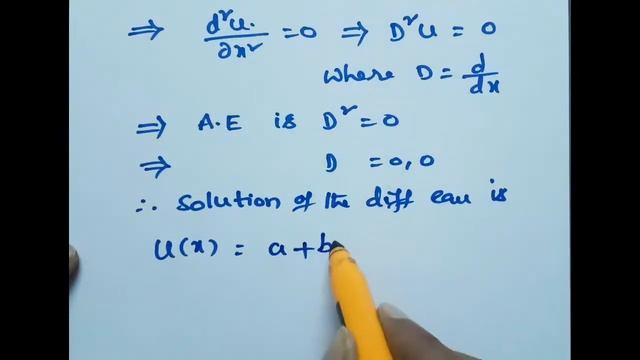 ⇒ d²u/∂x² = 0 ⇒ D²u = 0
where D = d/dx
⇒ A.E is D² = 0
⇒ D = 0, 0
∴ solution of the diff eqn is
u(x) = a + b